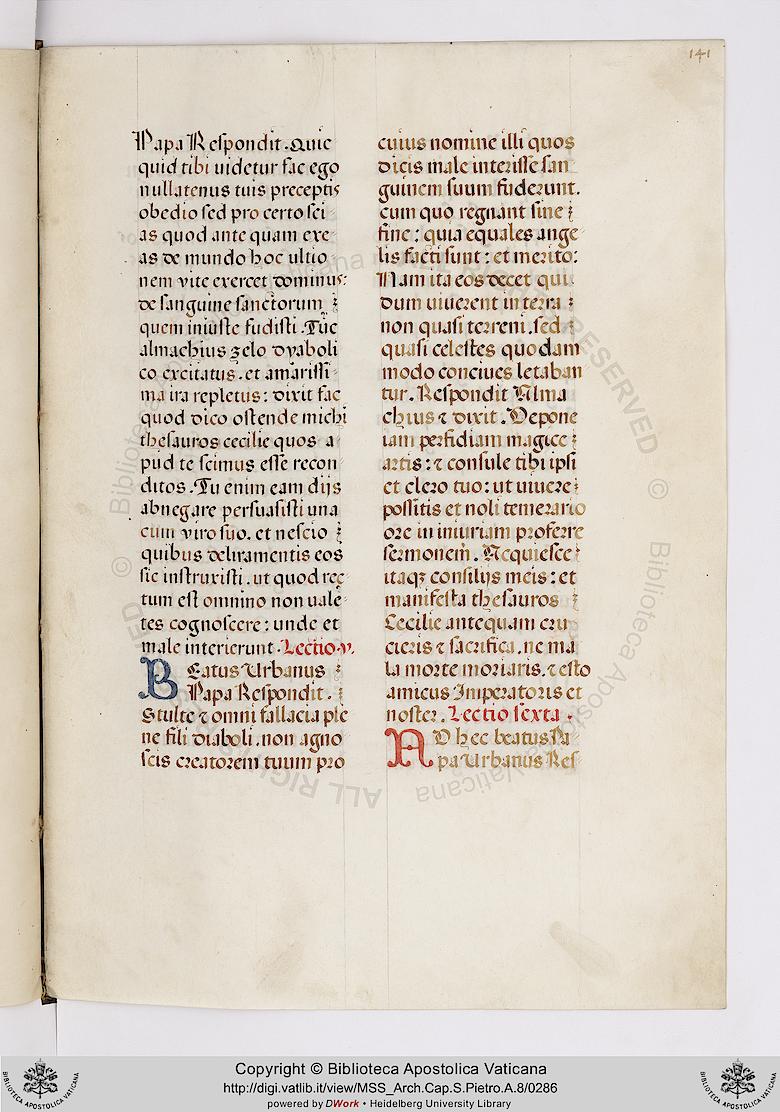 141
Papa Respondit. Quic
quid tibi uidetur fac ego
nullatenus tuis preceptis
obedio sed pro certo sci
as quod ante quam exe
as de mundo hoc ultio
nem vite exercet dominus:
de sanguine sanctorum
quem iniuste fudisti. Tūc
almachius zelo dyaboli
co excitatus. et amarissi
ma ira repletus: dixit fac
quod dico ostende michi
thesauros cecilie quos a
pud te scimus esse recon
ditos. Tu enim eam dijs
abnegare persuasisti una
cum viro suo. et nescio
quibus deliramentis eos
sic instruxisti. ut quod rec
tum est omnino non uale
tes cognoscere: unde et
male interierunt. Lectio. v.
BEatus Urbanus
Papa Respondit.
Stulte ⁊ omni fallacia ple
ne fili diaboli. non agno
scis creatorem tuum pro
cuius nomine illi quos
dicis male interisse san
guinem suum fuderunt.
cum quo regnant sine
fine: quia equales ange
lis facti sunt: et merito:
Nam ita eos decet qui
dum uiuerent in terra
non quasi terreni. sed
quasi celestes quodam
modo conciues letaban
tur. Respondit Alma
chius ⁊ dixit. Depone
iam perfidiam magice
artis: ⁊ consule tibi ipsi
et clero tuo: ut uiuere
possitis et noli temerario
ore in iniuriam proferre
sermonem. Acquiesce
itaqꝫ consilijs meis: et
manifesta thesauros
Cecilie antequam cru
cieris ⁊ sacrifica. ne ma
la morte moriaris. ⁊ esto
amicus Imperatoris et
noster. Lectio sexta.
AD hec beatus Pa
pa Urbanus Res
Copyright © Biblioteca Apostolica Vaticana
http://digi.vatlib.it/view/MSS_Arch.Cap.S.Pietro.A.8/0286
powered by DWork • Heidelberg University Library
BIBLIOTECA APOSTOLICA VATICANA
BIBLIOTECA APOSTOLICA VATICANA